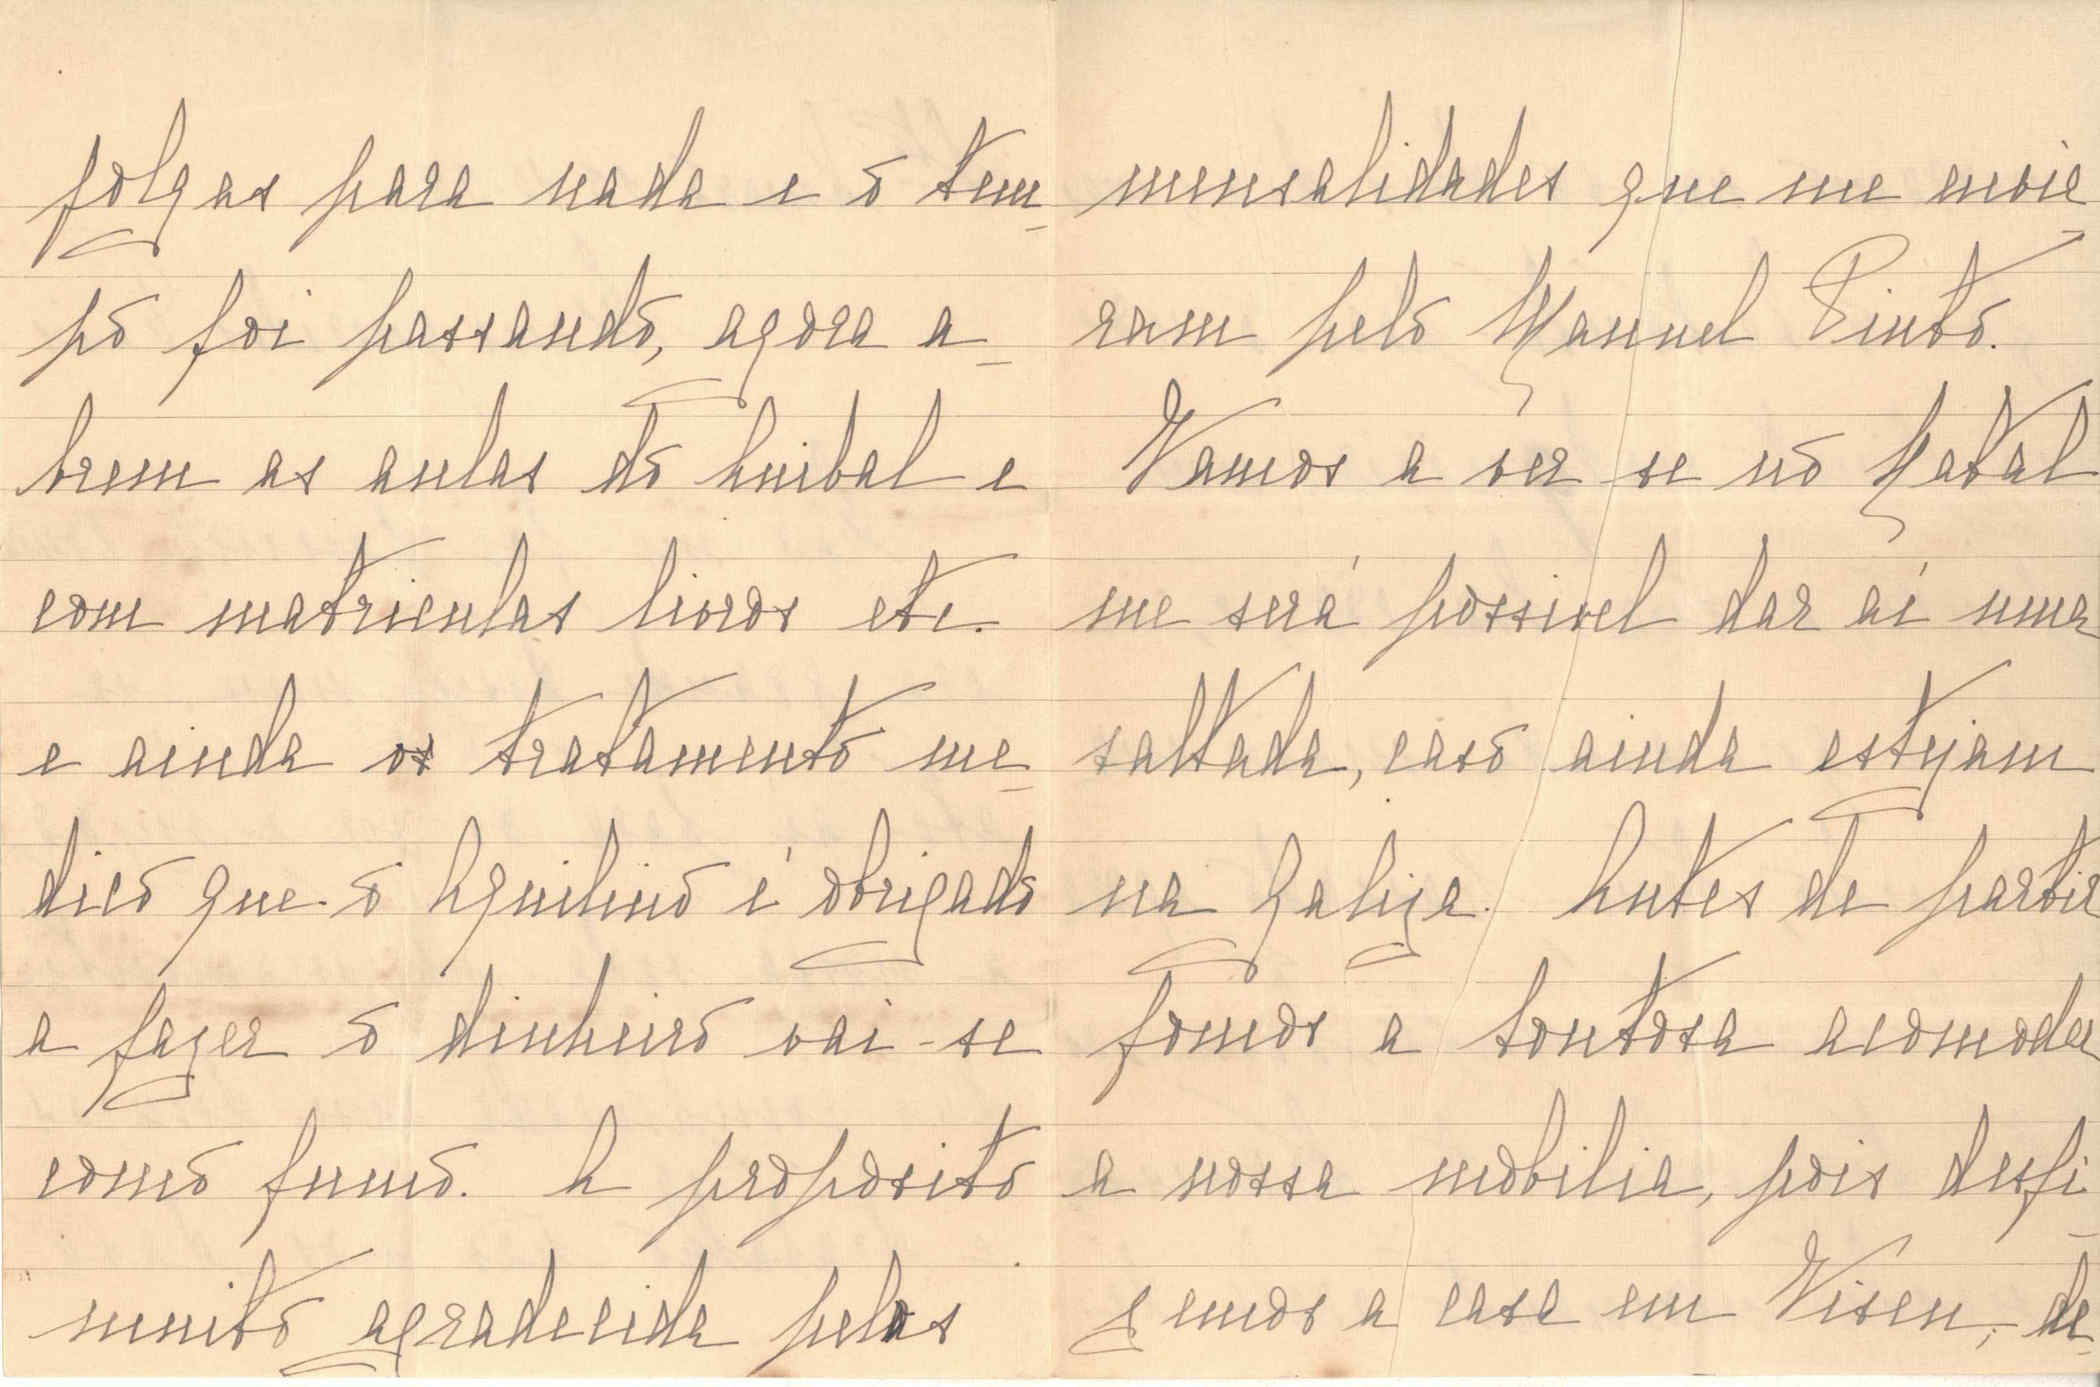 folgas para nada e o tem-
po foi passando, agora a-
brem as aulas do Anibal e
com matriculas livros etc.
e ainda os tratamento me-
dico que o Aquilino é obrigado
a fazer o dinheiro vai-se
como fumo. A proposito
muito agradecida pelas
mensalidades que me envie-
ram pelo Manuel Pinto.
Vamos a ver se no Natal
me será possivel dar aí uma
saltada, caso ainda estejam
na Galiza. Antes de partir
fomos a Soutosa acomodar
a nossa mobilia, pois desfi-
zemos a casa em Viseu, de-